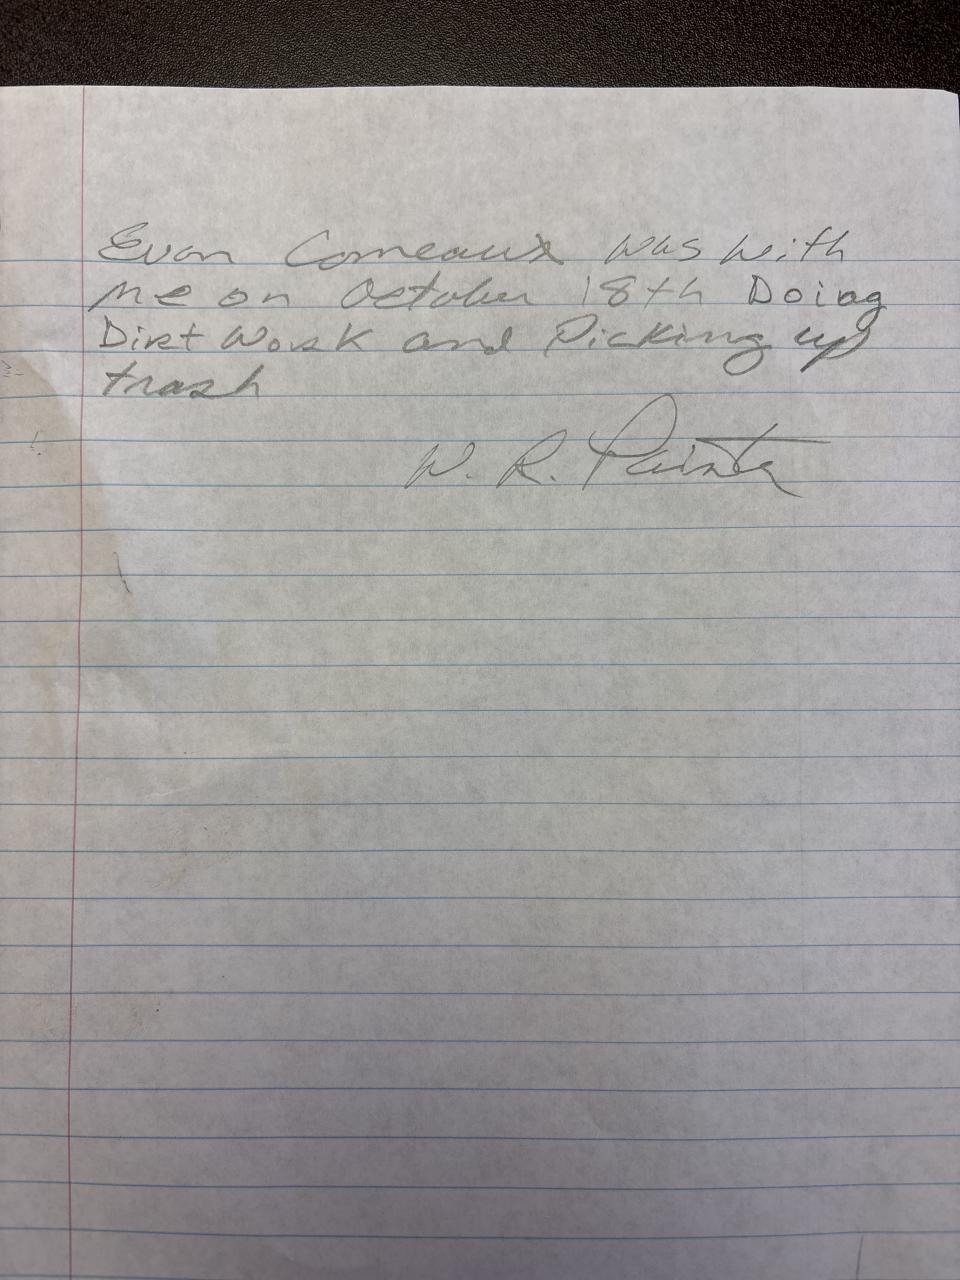 Evan Comeaux was with
me on October 18th Doing
Dirt Work and Picking up
trash
W. R. Painter